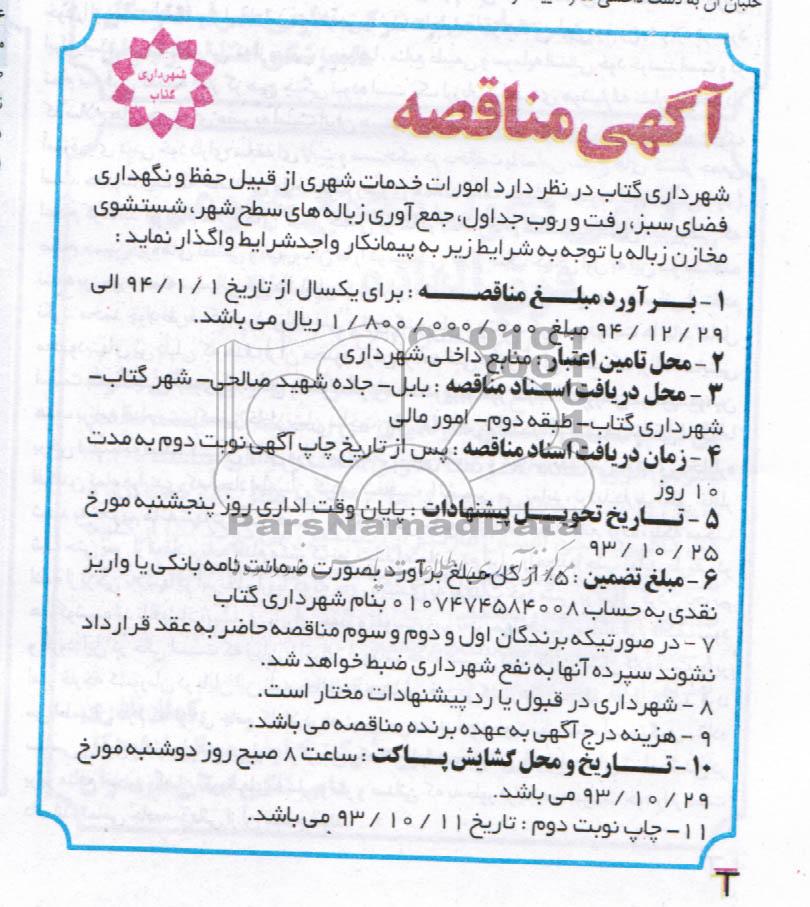 شهرداری
گتاب
آگهی مناقصه
شهرداری گتاب در نظر دارد امورات خدمات شهری از قبیل حفظ و نگهداری
فضای سبز، رفت و روب جداول، جمع آوری زباله های سطح شهر، شستشوی
مخازن زباله با توجه به شرایط زیر به پیمانکار واجدشرایط واگذار نماید:
۱- برآورد مبلغ مناقصه: برای یکسال از تاریخ ۹۴/۱/۱ الی
۹۴/۱۲/۲۹ مبلغ ۱/۸۰۰/۰۰۰/۰۰۰ ریال می باشد.
۲- محل تامین اعتبار: منابع داخلی شهرداری
۳- محل دریافت اسناد مناقصه: بابل- جاده شهید صالحی- شهر گتاب-
شهرداری گتاب- طبقه دوم- امور مالی
۴- زمان دریافت اسناد مناقصه: پس از تاریخ چاپ آگهی نوبت دوم به مدت
۱۰ روز
۵- تاریخ تحویل پیشنهادات: پایان وقت اداری روز پنجشنبه مورخ
۹۳/۱۰/۲۵
ParsNamadData
۶- مبلغ تضمین: ۵٪ از کل مبلغ برآورد بصورت ضمانت نامه بانکی یا واریز
نقدی به حساب ۰۱۰۷۴۷۴۵۸۴۰۰۸ بنام شهرداری گتاب
۷- در صورتیکه برندگان اول و دوم و سوم مناقصه حاضر به عقد قرارداد
نشوند سپرده آنها به نفع شهرداری ضبط خواهد شد.
۸- شهرداری در قبول یا رد پیشنهادات مختار است.
۹- هزینه درج آگهی به عهده برنده مناقصه می باشد.
۱۰- تاریخ و محل گشایش پاکت: ساعت ۸ صبح روز دوشنبه مورخ
۹۳/۱۰/۲۹ می باشد.
۱۱- چاپ نوبت دوم: تاریخ ۹۳/۱۰/۱۱ می باشد.